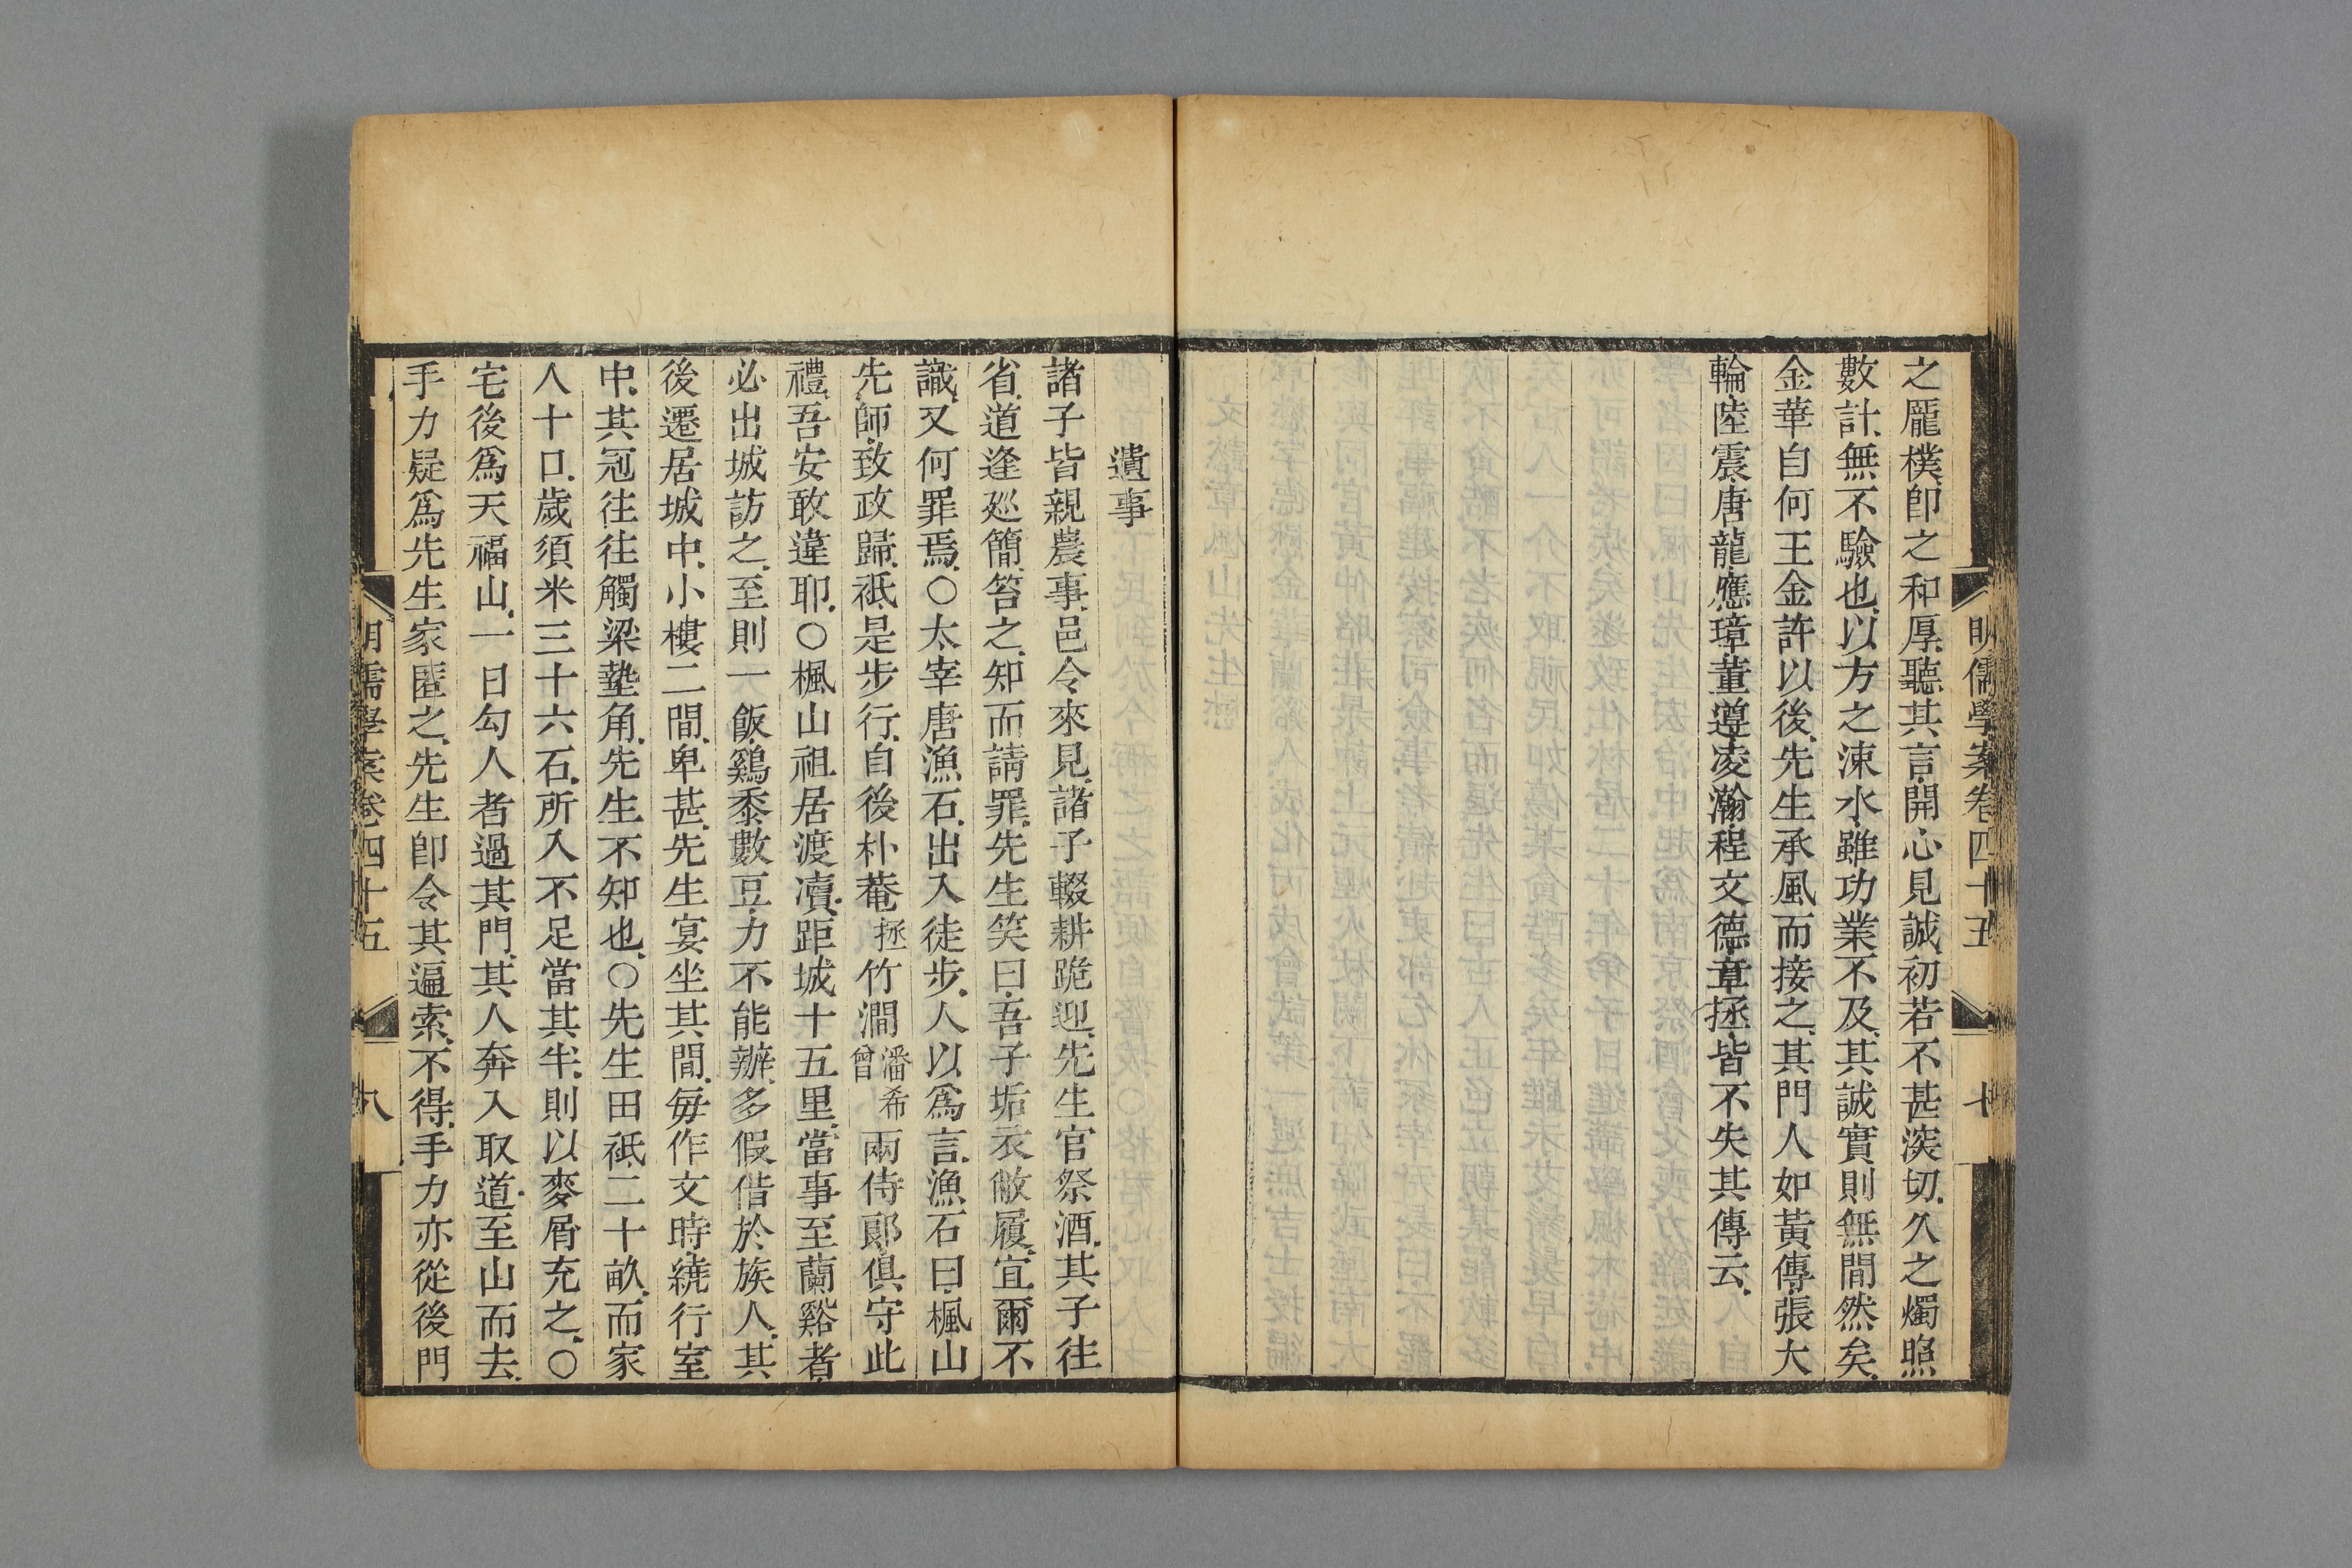 明儒學案卷四十五
十
之龐樸卽之和厚聽其言開心見誠初若不甚深切久之燭照
數計無不驗也以方之涑水雖功業不及其誠實則無間然矣
金華自何王金許以後先生承風而接之其門人如黃傅張大
輪陸震唐龍應璋董遵凌瀚程文德章拯皆不失其傳云
遺事
諸子皆親農事邑令來見諸子輟耕跪迎先生官祭酒其子往
省道逢廵簡笞之知而請罪先生笑曰吾子垢衣敝履宜爾不
識又何罪焉○太宰唐漁石出入徒步人以爲言漁石曰楓山
先師致政歸祇是步行自後朴菴拯竹澗潘希曾兩侍郎俱守此
禮吾安敢違耶○楓山祖居渡瀆距城十五里當事至蘭谿者
必出城訪之至則一飯鷄黍數豆力不能辦多假偕於族人其
後遷居城中小樓二間卑甚先生宴坐其間每作文時繞行室
中其冠往往觸梁墊角先生不知也○先生田祇二十畝而家
人十口歲須米三十六石所入不足當其半則以麥屑充之○
宅後爲天福山一日勾人者過其門其人奔入取道至山而去
手力疑爲先生家匿之先生卽令其遍索不得手力亦從後門
明儒學案卷四十五
八